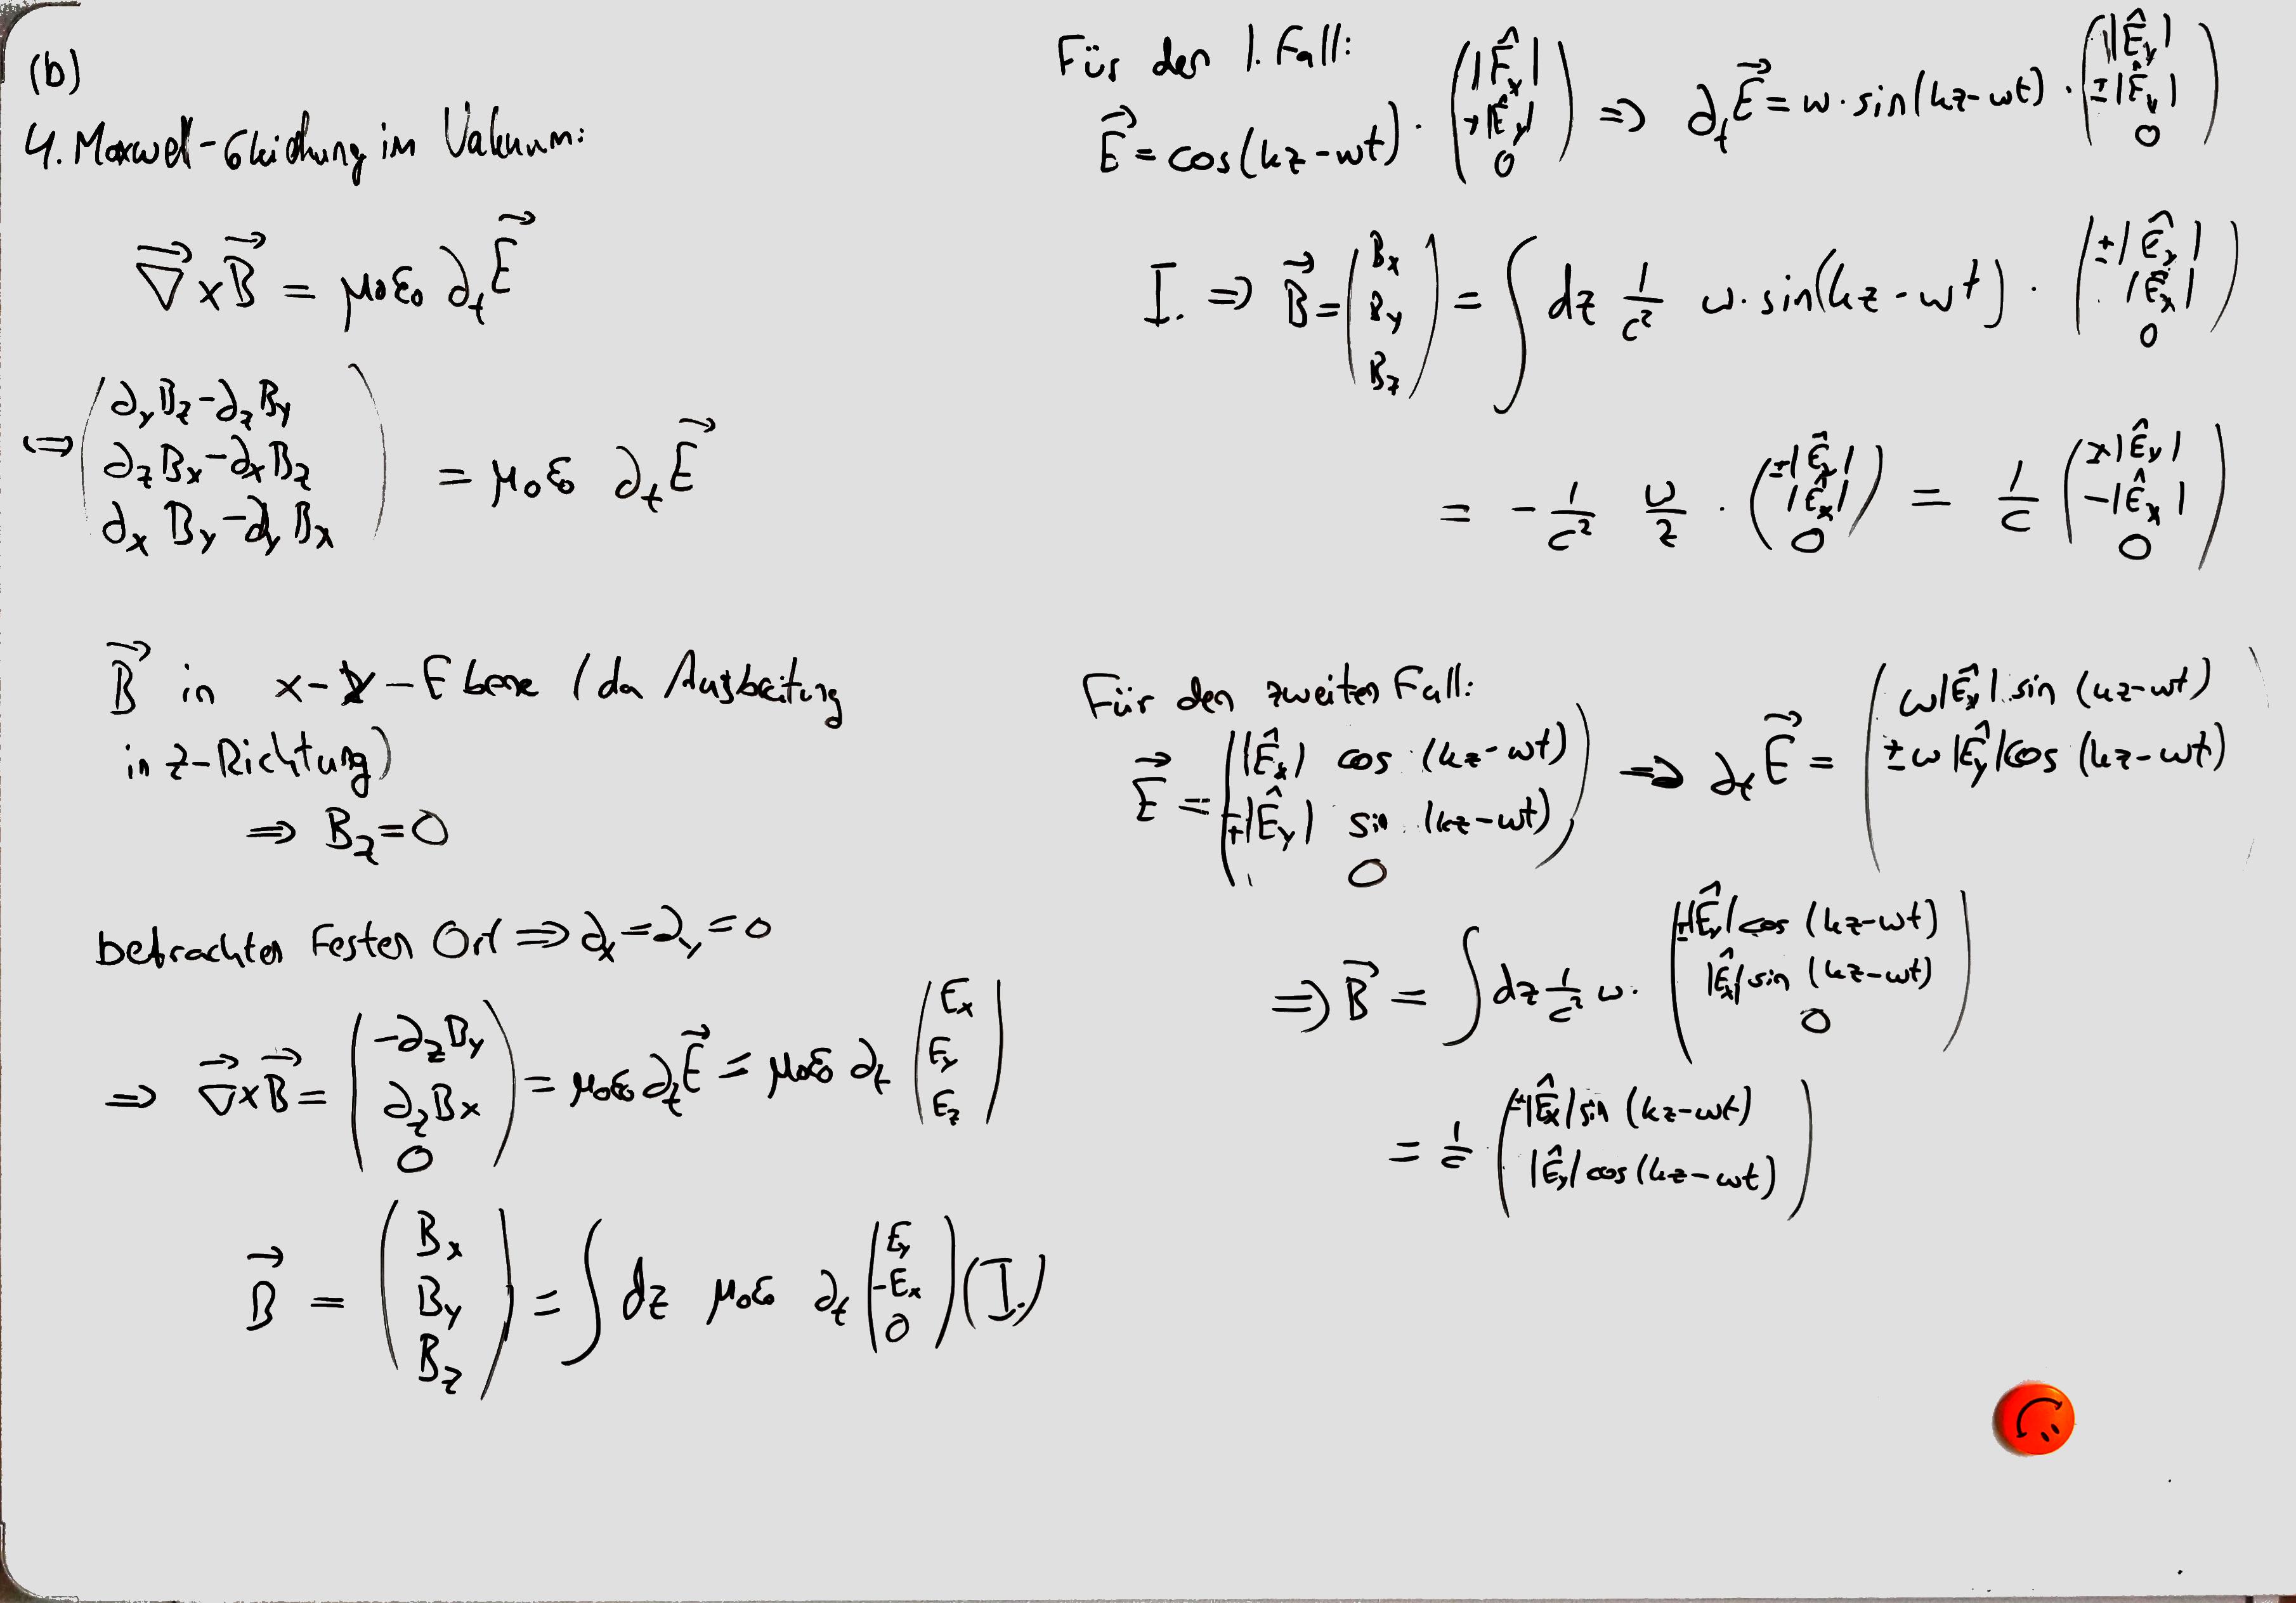 (b)
4. Maxwell-Gleichung im Vakuum:
∇⃗ × B⃗ = μ₀ε₀ ∂ₜE⃗
⇔ (∂yBz - ∂zBy
∂zBx - ∂xBz
∂xBy - ∂yBx) = μ₀ε₀ ∂ₜE⃗
B⃗ in x-y-Ebene (da Ausbreitung
in z-Richtung)
⇒ Bz = 0
betrachten festen Ort ⇒ ∂x = ∂y = 0
⇒ ∇⃗ × B⃗ = (-∂zBy
∂zBx
0) = μ₀ε₀ ∂ₜE⃗ = μ₀ε₀ ∂ₜ (Ex
Ey
Ez)
B⃗ = (Bx
By
Bz) = ∫ dz μ₀ε₀ ∂ₜ (Ey
-Ex
0) (I.)
Für den 1. Fall:
E⃗ = cos(kz-ωt) · (|Êx|
±|Êy|
0) ⇒ ∂ₜE⃗ = ω · sin(kz-ωt) · (|Êx|
±|Êy|
0)
I. ⇒ B⃗ = (Bx
By
Bz) = ∫ dz 1/c² ω · sin(kz-ωt) · (±|Êy|
|Êx|
0)
= - 1/c² ω/z · (±|Êy|
|Êx|
0) = 1/c (∓|Êy|
-|Êx|
0)
Für den zweiten Fall:
E⃗ = (|Êx| cos (kz-ωt)
∓|Êy| sin (kz-ωt)
0) ⇒ ∂ₜE⃗ = (ω|Êx| sin (kz-ωt)
±ω|Êy| cos (kz-ωt))
⇒ B⃗ = ∫ dz 1/c² ω · (±|Êy| cos (kz-ωt)
|Êx| sin (kz-ωt)
0)
= 1/c · (±|Êx| sin (kz-ωt)
|Êy| cos (kz-ωt))